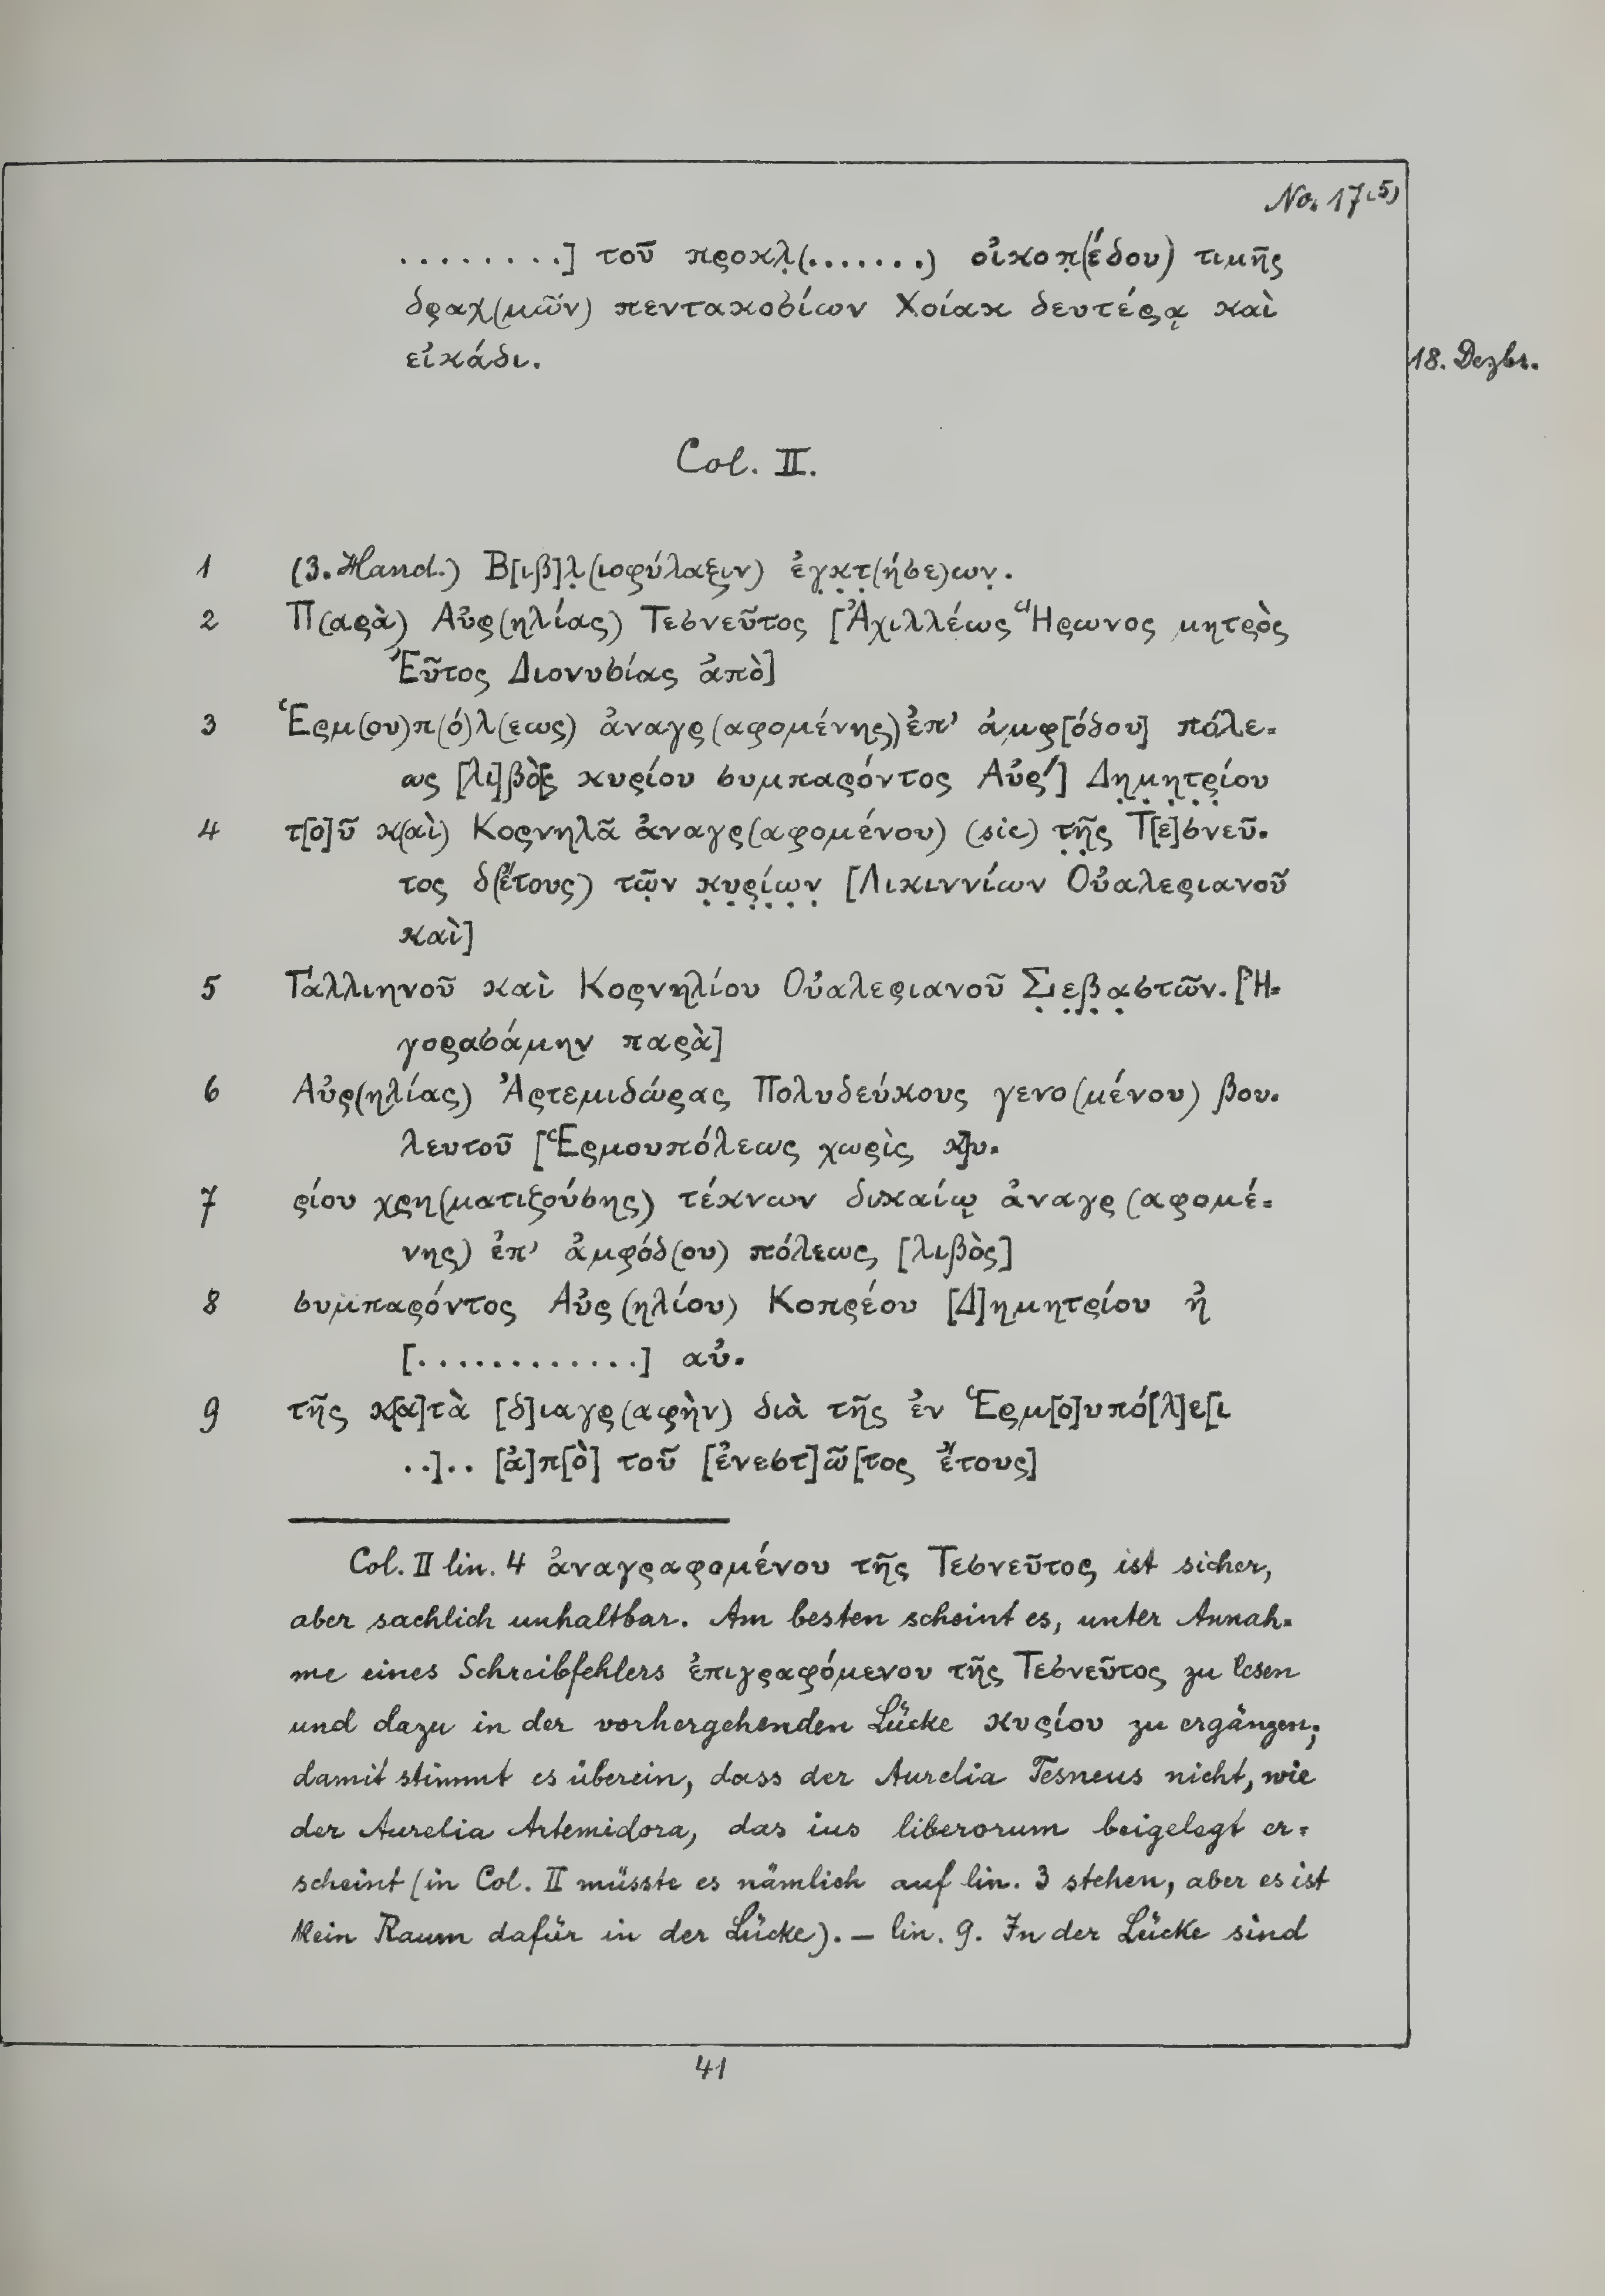 No. 17(5)
. . . . . . . .] τοῦ προκλ̣(. . . . . . .) οἰκοπ̣(έδου) τιμῆς
δραχ(μῶν) πεντακοσίων Χοίακ δευτέρᾳ καὶ
εἰκάδι.
18. Dezbr.
Col. II.
1 (3. Hand.) Β[ιβ]λ̣(ιοφύλαξιν) ἐγ̣κ̣τ̣(ήσε)ων̣.
2 Π(αρὰ) Αὐρ(ηλίας) Τεσνεῦτος [Ἀχιλλέως Ἥρωνος μητρὸς
Ἑῦτος Διονυσίας ἀπὸ]
3 Ἑρμ(ου)π(ό)λ(εως) ἀναγρ(αφομένης) ἐπ’ ἀμφ[όδου] πόλε-
ως [λι]βὸ[ς κυρίου συμπαρόντος Αὐρ′] Δ̣η̣μ̣η̣τ̣ρ̣ίου
4 τ[ο]ῦ κ(αὶ) Κορνηλᾶ ἀναγρ(αφομένου) (sic) τ̣ῆ̣ς Τ[ε]σνεῦ-
τος δ(ἔτους) τῶ̣ν κ̣υ̣ρ̣ί̣ω̣ν̣ [Λικιννίων Οὐαλεριανοῦ
καὶ]
5 Γαλλιηνοῦ καὶ Κορνηλίου Οὐαλεριανοῦ Σ̣ε̣β̣α̣στῶν. [Ἠ-
γορασάμην παρὰ]
6 Αὐρ(ηλίας) Ἀρτεμιδώρας Πολυδεύκους γενο(μένου) βου-
λευτοῦ [Ἑρμουπόλεως χωρὶς κ]υ-
7 ρίου χρη(ματιζούσης) τέκνων δικαίῳ ἀναγρ(αφομέ-
νης) ἐπ’ ἀμφόδ(ου) πόλεως [λιβὸς]
8 συμπαρόντος Αὐρ(ηλίου) Κοπρέου [Δ]ημητρίου ἠ
[. . . . . . . . . . . .] αὐ-
9 τῆς κ[α]τὰ [δ]ιαγρ(αφὴν) διὰ τῆς ἐν Ἑρμ[ο]υπό[λ]ε[ι
. .]. . [ἀ]π[ὸ] τοῦ [ἐνεστ]ῶ[τος ἔτους]
Col. II lin. 4 ἀναγραφομένου τῆς Τεσνεῦτος ist sicher,
aber sachlich unhaltbar. Am besten scheint es, unter Annah-
me eines Schreibfehlers ἐπιγραφόμενου τῆς Τεσνεῦτος zu lesen
und dazu in der vorhergehenden Lücke κυρίου zu ergänzen;
damit stimmt es überein, dass der Aurelia Tesneus nicht, wie
der Aurelia Artemidora, das ius liberorum beigelegt er-
scheint (in Col. II müsste es nämlich auf lin. 3 stehen, aber es ist
kein Raum dafür in der Lücke). — lin. 9. In der Lücke sind
41